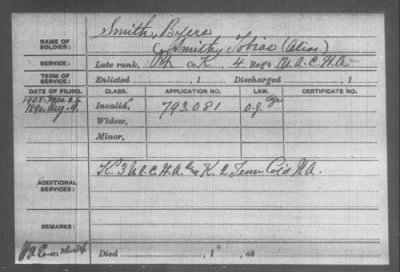 NAME OF SOLDIER: Smith, Byers
Smith, Tobias (Alias)
SERVICE: Late rank, Pvt Co. K, 4 Reg't U.S.C.H.A.
TERM OF SERVICE: Enlisted , 1 Discharged , 1
DATE OF FILING. CLASS. APPLICATION NO. LAW. CERTIFICATE NO.
1908-Mar 26
1890 Aug. 9. Invalid, 793.081 O.J.
Widow,
Minor,
ADDITIONAL SERVICES: K. 3 U.S.C.H.A. K. 2 Tenn Col'd H.A.
REMARKS:
Died , 1 , at